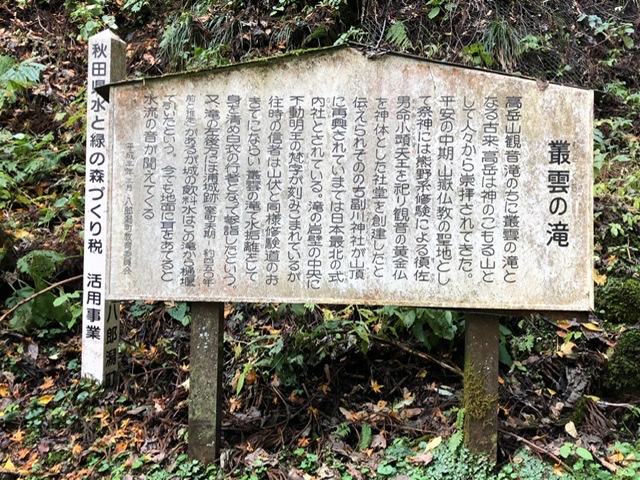 叢雲の滝
高岳山観音滝のちに叢雲の滝と
なる古来、高岳は神のこもる山と
して人々から崇拝されてきた。
平安の中期、山嶽仏教の聖地とし
て祭神には熊野系修験による須佐
男命小頭天王を祀り観音の黄金仏
を神体とした社堂を創建したと
伝えられてそののち副川神社が山頂
に再興されていまでは日本最北の式
内社とされている。滝の岩壁の中央に
不動明王の梵字が刻みこまれているが
往時の信者は山伏と同様修験道のお
きてにならい、叢雲の滝で水垢離をして
身を清め白衣の行者となって参詣したという。
又、滝の左後方には浦城跡
があるが城の飲料水はこの滝から樋堰
でひいたという。今でも地面に耳をあてると
水流の音が聞えてくる
八郎潟町教育委員会
秋田県水と緑の森づくり税 活用事業
八郎潟